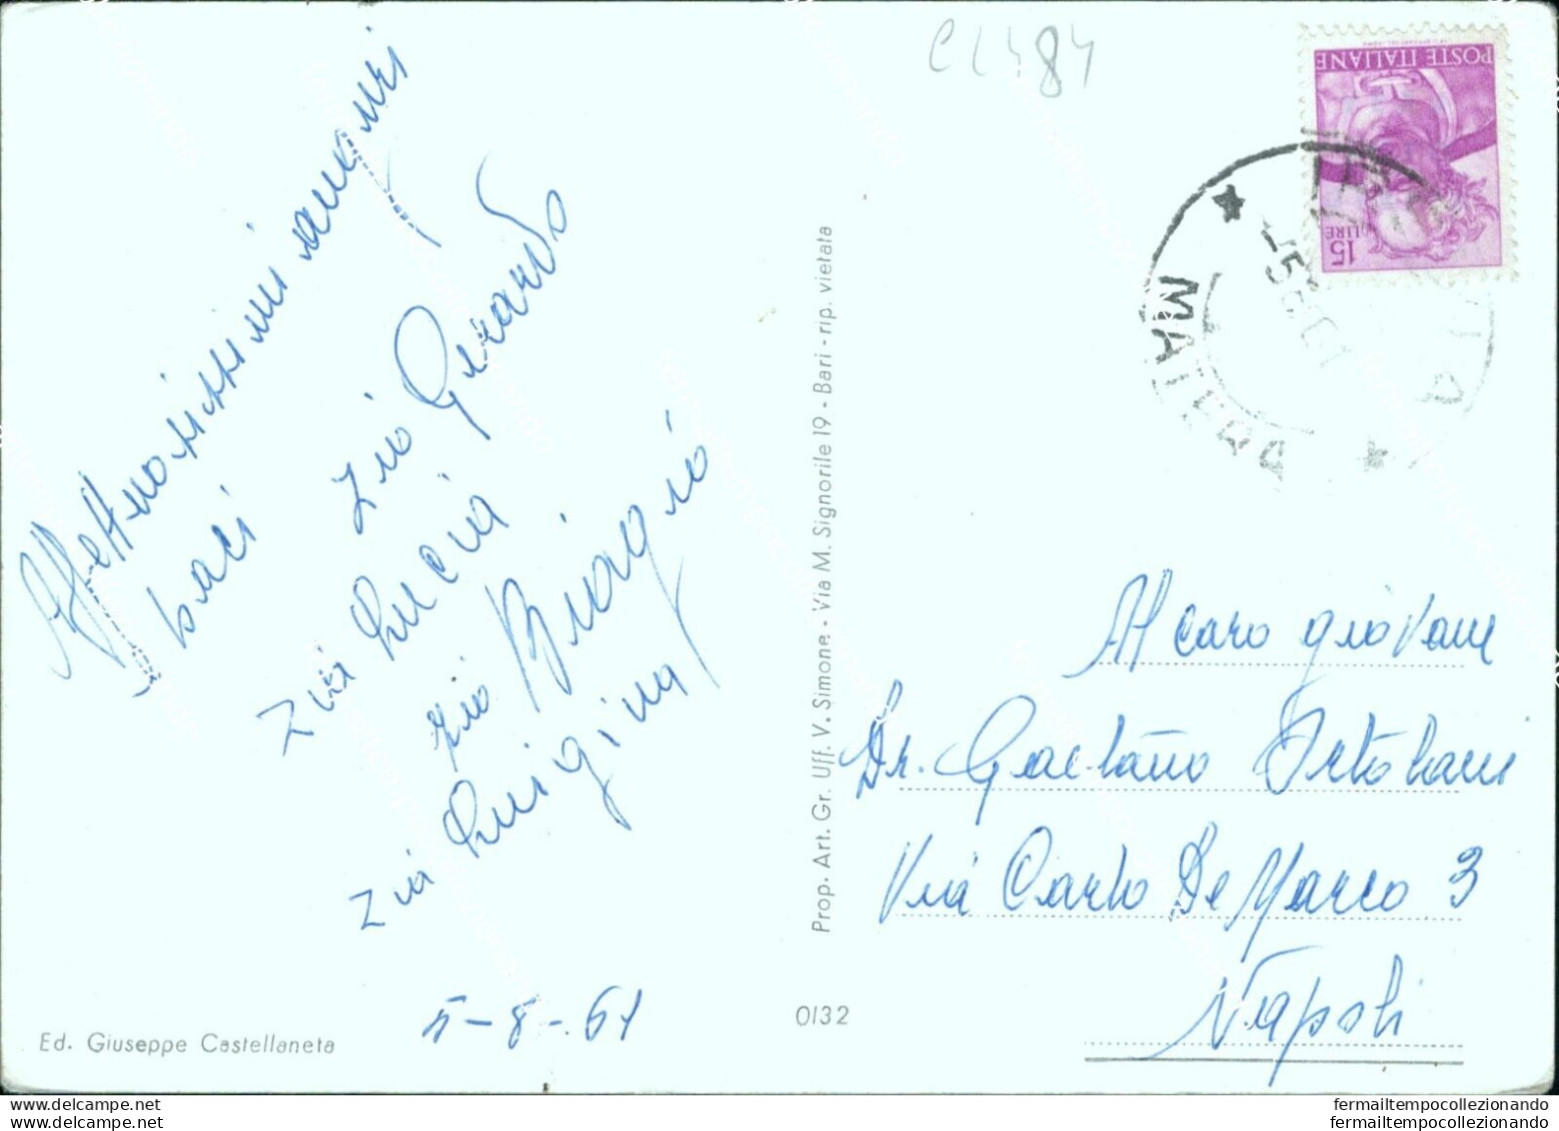 Affettuosissimi auguri
baci
zio Gerardo
zia Lucia
zio Biagio
zia Luigina
5-8-61
Ed. Giuseppe Castellaneta
Prop. Art. Gr. Uff. V. Simone - Via M. Signorile 19 - Bari - rip. vietata
0132
POSTE ITALIANE
15 LIRE
MATERA
Al caro giovane
Dr. Gaetano Ortolani
Via Carlo De Marco 3
Napoli
www.delcampe.net
www.delcampe.net
fermailtempocollezionando
fermailtempocollezionando